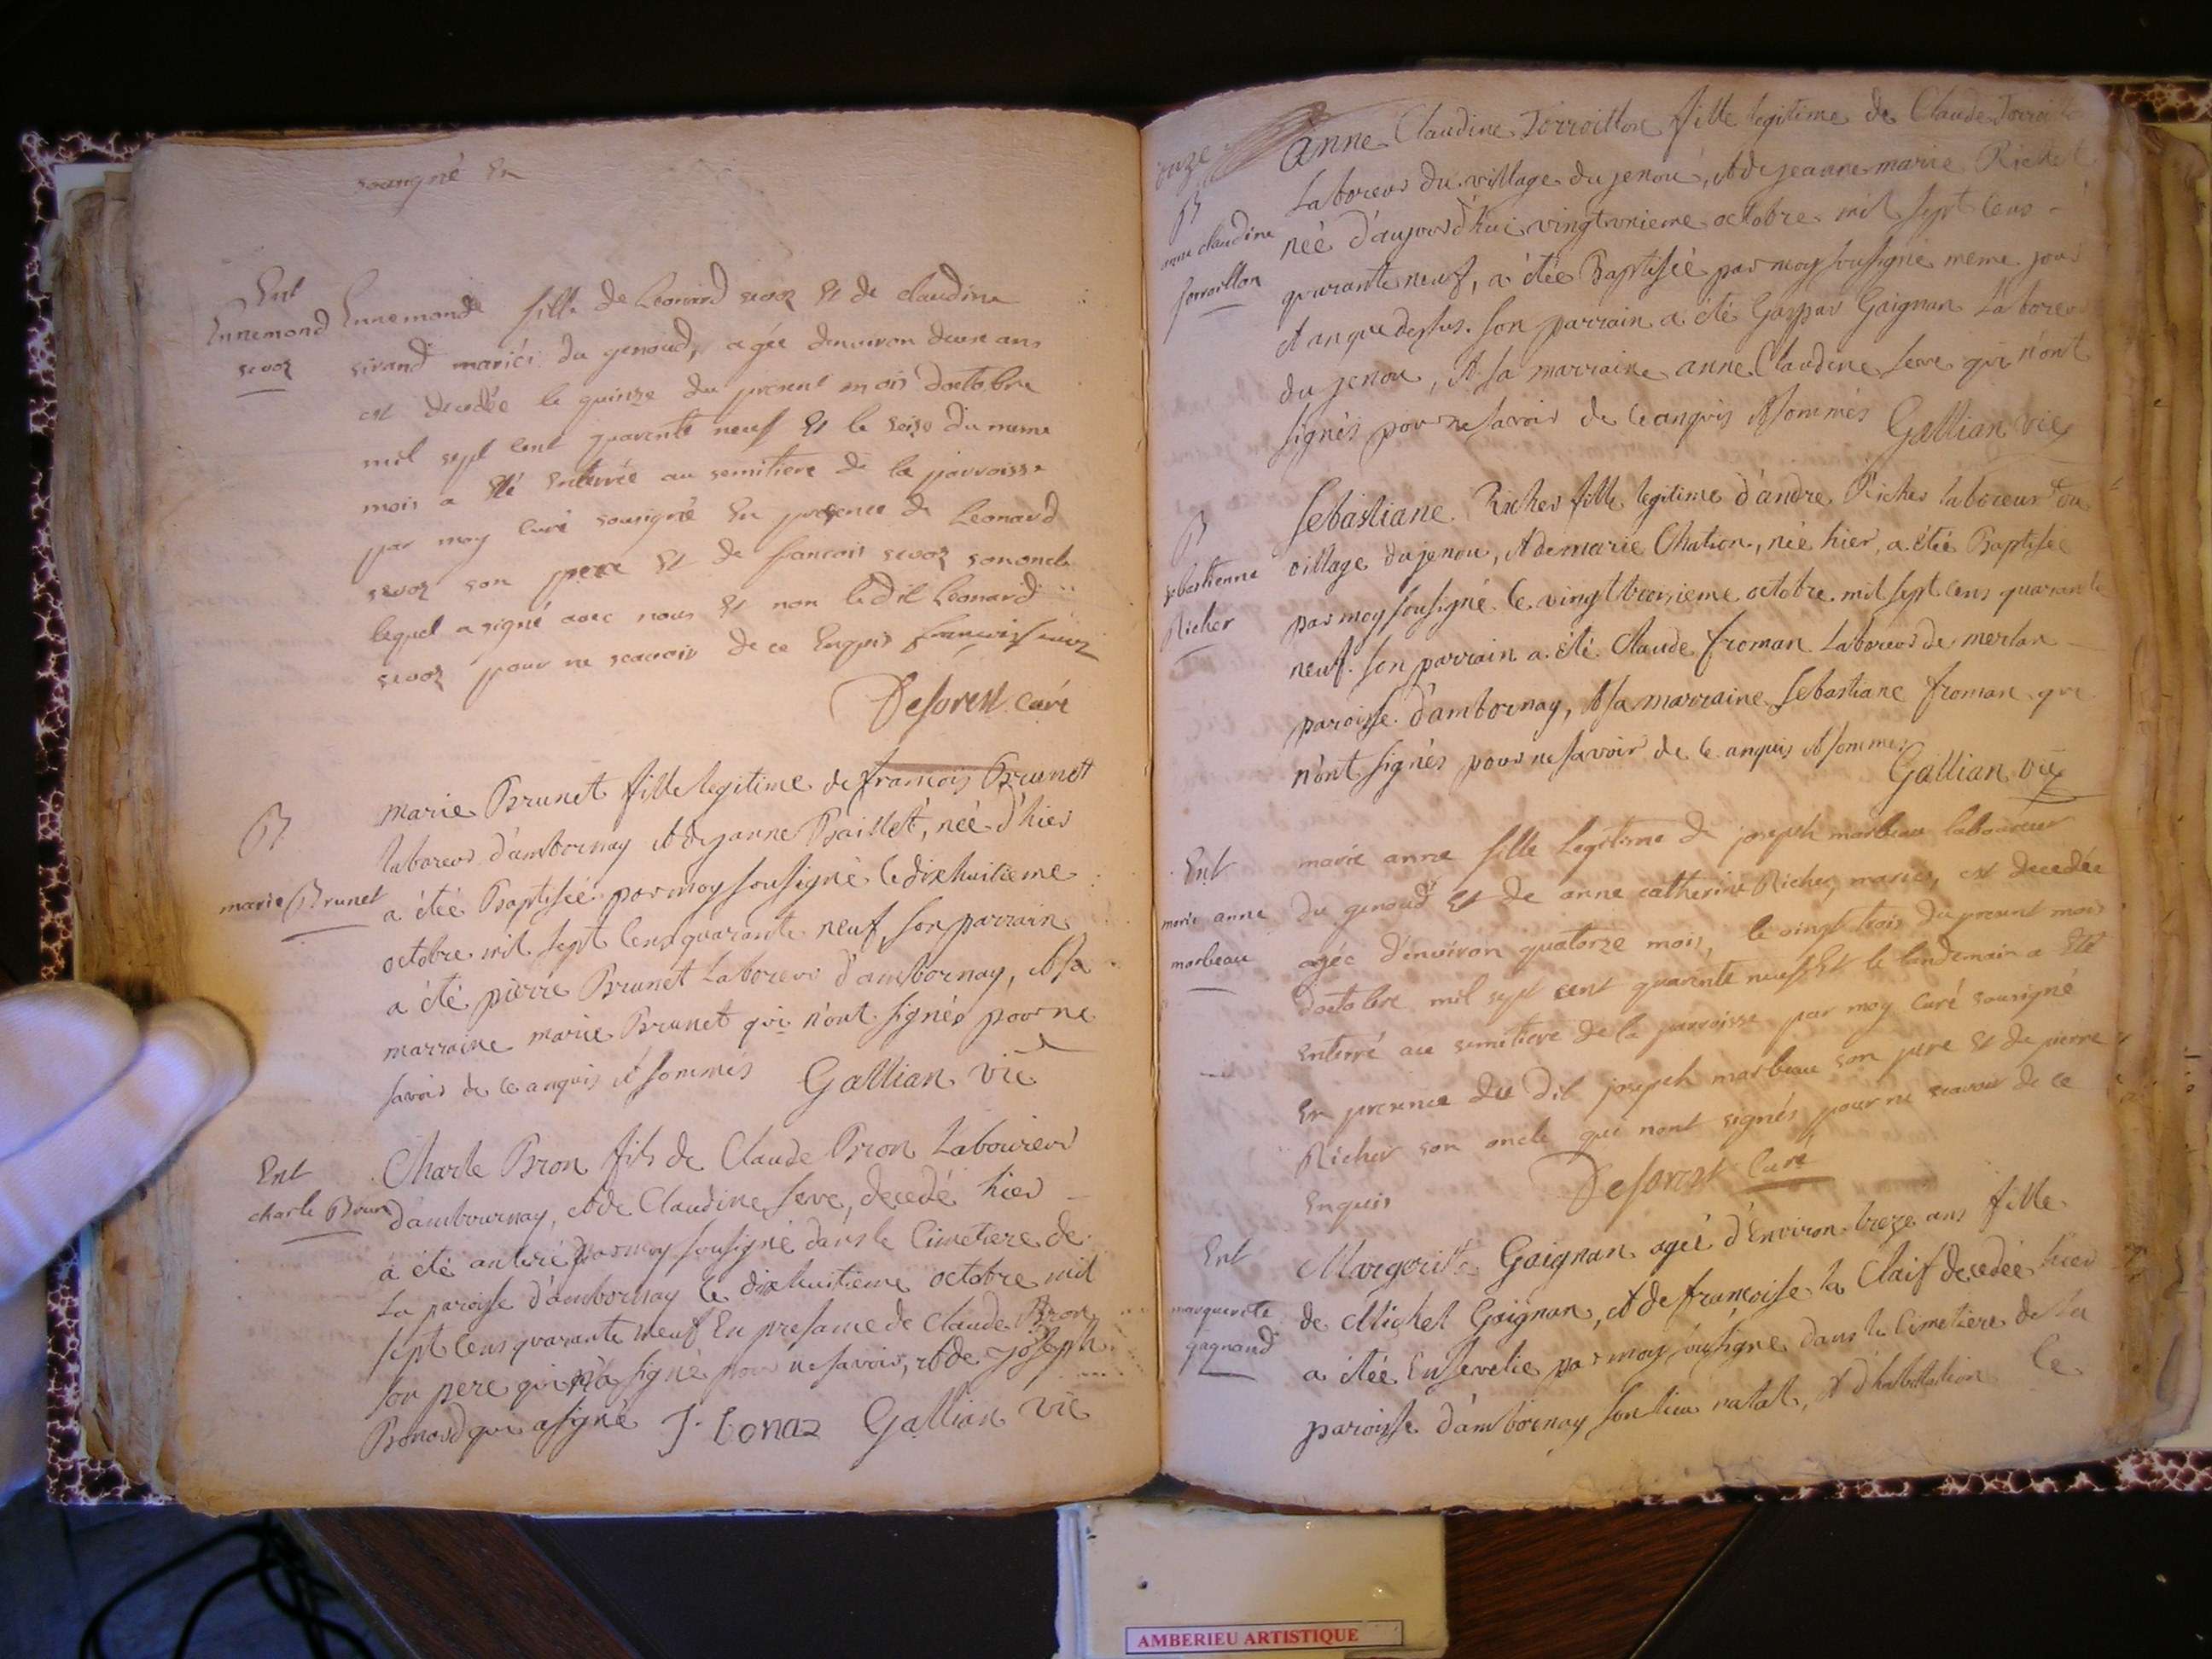 sousigné En
Ent
Ennemond
sevoz
Ennemonde fille de Leonard sevoz Et de claudine
sirand mariés du genoud, agée denviron deux ans
est decedée le quinze du present mois doctobre
mil sept cent quarente neuf Et le seise du meme
mois a Eté Enterrée au semitiere de la parroisse
par moy curé sousigné En presence de Leonard
sevoz son pere Et de francois sevoz son oncle
lequel a signé avec nous Et non le dit Leonard
sevoz pour ne scavoir de ce Enquis francois sevoz
Deforest curé
B
marie Brunet
marie Brunet fille legitime de francois Brunet
laboreur d'ambornay et de janne Baillet, née d'hier
a étée Baptisée par moy sousigné le dixhuitieme
octobre mil sept cens quarante neuf, son parrain
a été pierre Brunet Laboreur d'ambornay, et sa
marraine marie Brunet qui n'ont signés pour ne
savoir de ce anquis et sommés Gallian vic
Ent
charle Bron
Charle Bron fils de Claude Bron Laboureur
d'ambournay, et de Claudine serve, decedé hier
a été anteré par moy sousigné dans le Cimetiere de
la paroisse d'ambornay le dixhuitieme octobre mil
sept cens quarante neuf En presance de Claude Bron
son pere qui n'a signé pour ne savoir, et de joseph
Bonard qui a signé J. bonaz Gallian vic
onze
B
anne claudine
Jorroillon
Anne Claudine Jorroillon fille legitime de Claude Jorroillon
Laboreur du village du jenou, et de jeanne marie Richet
née d'aujourd'hui vingtunieme octobre mil sept cens
quarante neuf, a étée Baptisée par moy sousigné meme jour
et an que dessus. son parrain a été Gaspar Gaignan Laboreur
du jenou, et sa marraine anne Claudine serve qui n'ont
signés pour ne savoir de ce anquis et sommés Gallian vic
B
sebastienne
Richer
Sebastiane Richer fille legitime d'andre Richer laboreur du
village du jenou, et de marie Chation, née hier, a étée Baptisée
par moy sousigné le vingt troisieme octobre mil sept cens quarante
neuf. son parrain a été Claude froman Laboreur de merlan
paroisse d'ambornay, et sa marraine Sebastiane froman qui
n'ont signés pour ne savoir de ce anquis et sommes
Gallian vic
Ent
marie anne
morbeau
marie anne fille Legitime de joseph morbeau laboureur
du genoud Et de anne catherine Richer, mariés, est decedée
agée d'environ quatorze mois, le vingt trois du present mois
d'octobre mil sept cent quarente neuf Et le landemain a Eté
Enterré au semitiere de la parroisse par moy curé sousigné
En presence du dit joseph morbeau son pere Et de pierre
Richer son oncle qui nont signés pour ne scavoir de ce
Enquis Deforest Curé
Ent
marguerite
gagnand
Margorite Gaignan agée d'Environ treze ans fille
de Michel Gaignan, et de françoise la Claif decedée hier
a étée Ensevelie par moy sousigné dans le Cimetiere de la
paroisse d'ambornay son lieu natal, et d'habitation le
AMBERIEU ARTISTIQUE